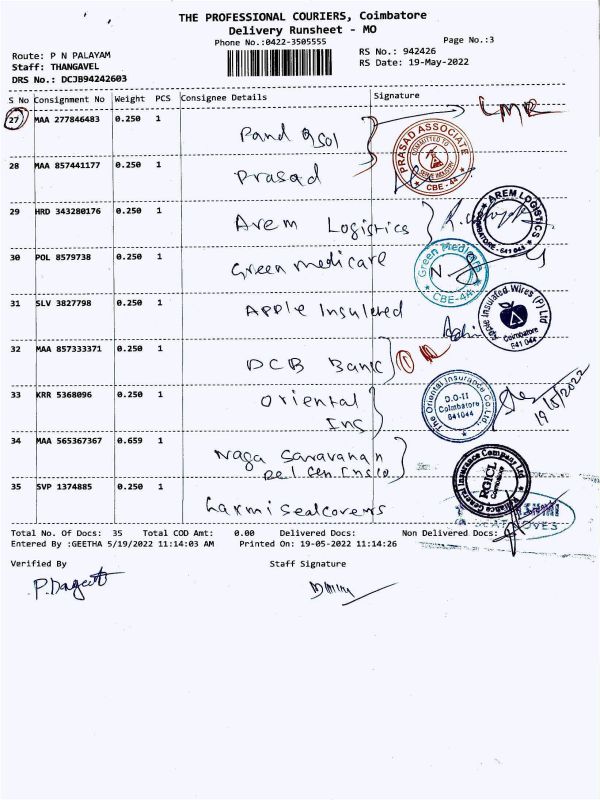 THE PROFESSIONAL COURIERS, Coimbatore
Delivery Runsheet - MO
Phone No.:0422-3505555
Page No.:3
Route: P N PALAYAM
RS No.: 942426
Staff: THANGAVEL
RS Date: 19-May-2022
DRS No.: DCJB94242603
S No Consignment No Weight PCS Consignee Details Signature
27 MAA 277846483 0.250 1 Pand qsol LMR
PRASAD ASSOCIATE
COMMITTED TO
SERVE INDUSTRY
CBE - 44
28 MAA 857441177 0.250 1 Prasad
29 HRD 343280176 0.250 1 Arem Logistics
AREM LOGISTICS
COIMBATORE - 641 044
30 POL 8579738 0.250 1 Green medicare
Green Medicare
CBE-44
31 SLV 3827798 0.250 1 Apple Insulered
Apple Insulated Wires (P) Ltd
Coimbatore
641 044
32 MAA 857333371 0.250 1 DCB Bank 1
33 KRR 5368096 0.250 1 Oriental
Ins
The Oriental Insurance Co.Ltd.,
D.O-II
Coimbatore
641044
19/5/2022
34 MAA 565367367 0.659 1 Naga Saravanan
Rel Gen Ins Co.
Reliance General Insurance Company Ltd
RGICL
Coimbatore
35 SVP 1374885 0.250 1 Laxmi Sealcovers
Total No. Of Docs: 35 Total COD Amt: 0.00 Delivered Docs: Non Delivered Docs:
Entered By :GEETHA 5/19/2022 11:14:03 AM Printed On: 19-05-2022 11:14:26
Verified By Staff Signature